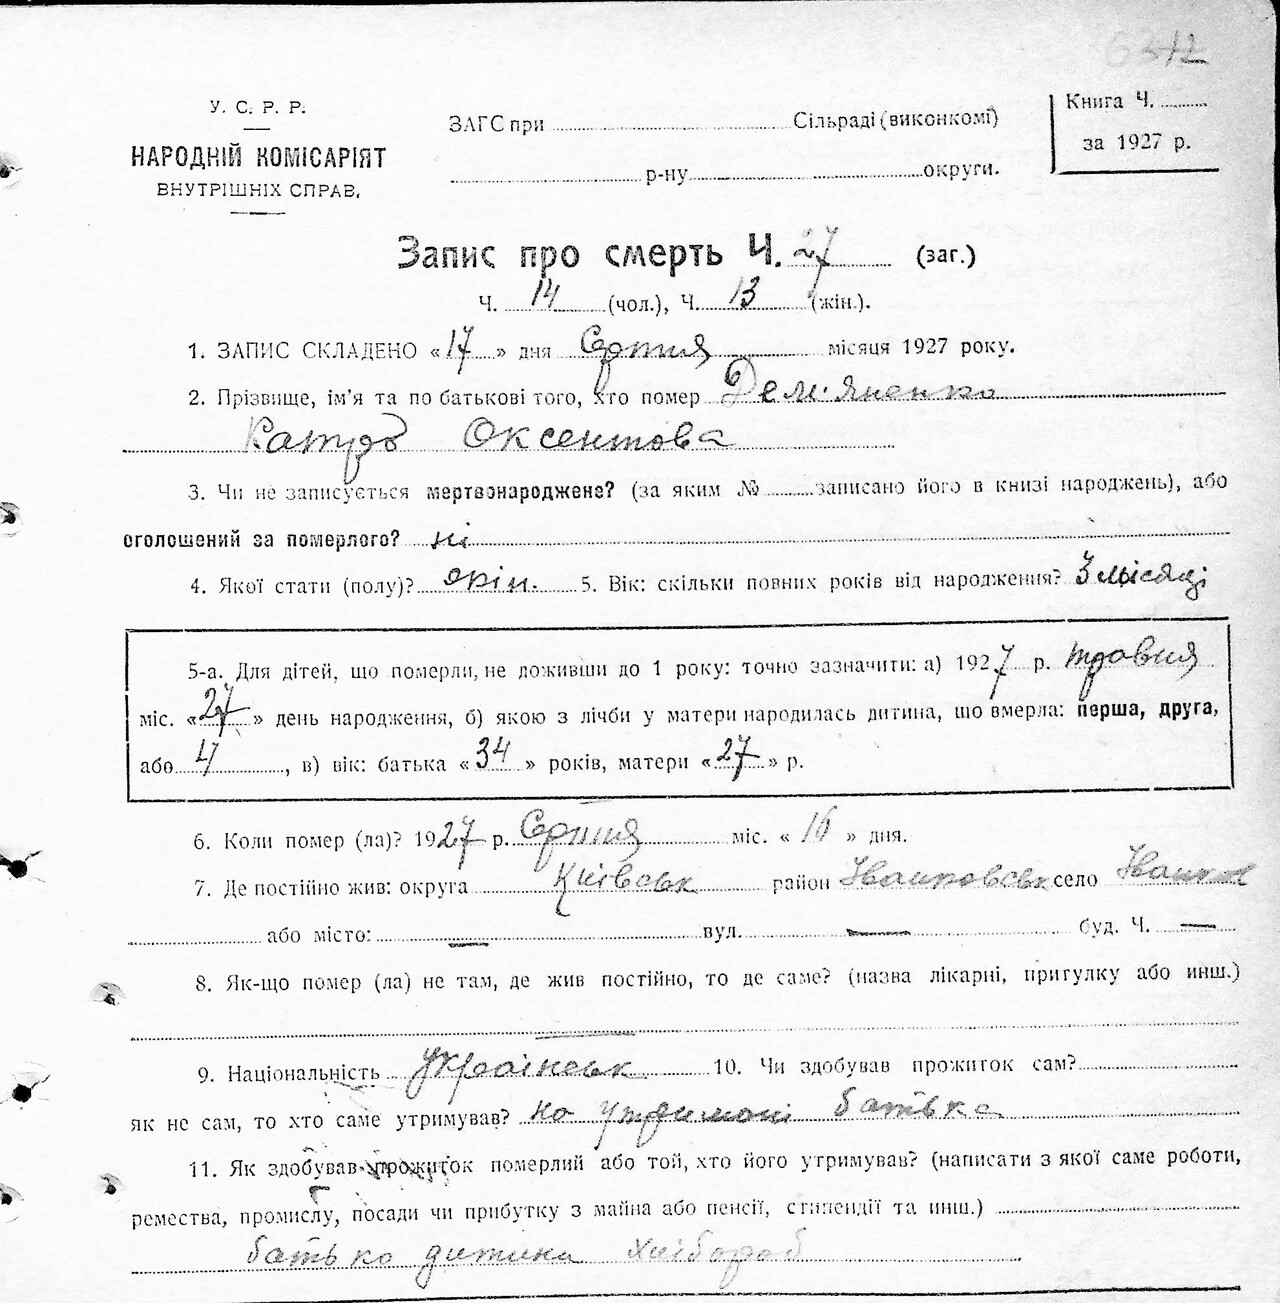 6342
У. С. Р. Р.
НАРОДНІЙ КОМІСАРІЯТ
ВНУТРІШНІХ СПРАВ.
ЗАГС при Сільраді (виконкомі)
р-ну округи.
Книга Ч.
за 1927 р.
Запис про смерть Ч. 27 (заг.)
Ч. 14 (чол.), Ч. 13 (жін.).
1. ЗАПИС СКЛАДЕНО «17» дня Серпня місяця 1927 року.
2. Прізвище, ім'я та по батькові того, хто помер Дем'яненко
Катря Оксентова
3. Чи не записується мертвонароджене? (за яким № записано його в книзі народжень), або
оголошений за померлого? ні
4. Якої стати (полу)? жін. 5. Вік: скільки повних років від народження? 3 місяці
5-а. Для дітей, що померли, не доживши до 1 року: точно зазначити: а) 1927 р. травня
міс. «27» день народження, б) якою з лічби у матери народилась дитина, що вмерла: перша, друга,
або 4, в) вік: батька «34» років, матери «27» р.
6. Коли помер (ла)? 1927 р. Серпня міс. «16» дня.
7. Де постійно жив: округа Київськ район Іванковськ село Іванків
або місто: — вул. — буд. Ч. —
8. Як-що помер (ла) не там, де жив постійно, то де саме? (назва лікарні, притулку або инш.)
9. Національність Українськ 10. Чи здобував прожиток сам?
як не сам, то хто саме утримував? на утримані батька
11. Як здобував прожиток померлий або той, хто його утримував? (написати з якої саме роботи,
ремества, промислу, посади чи прибутку з майна або пенсії, стипендії та инш.)
батько дитини хлібороб